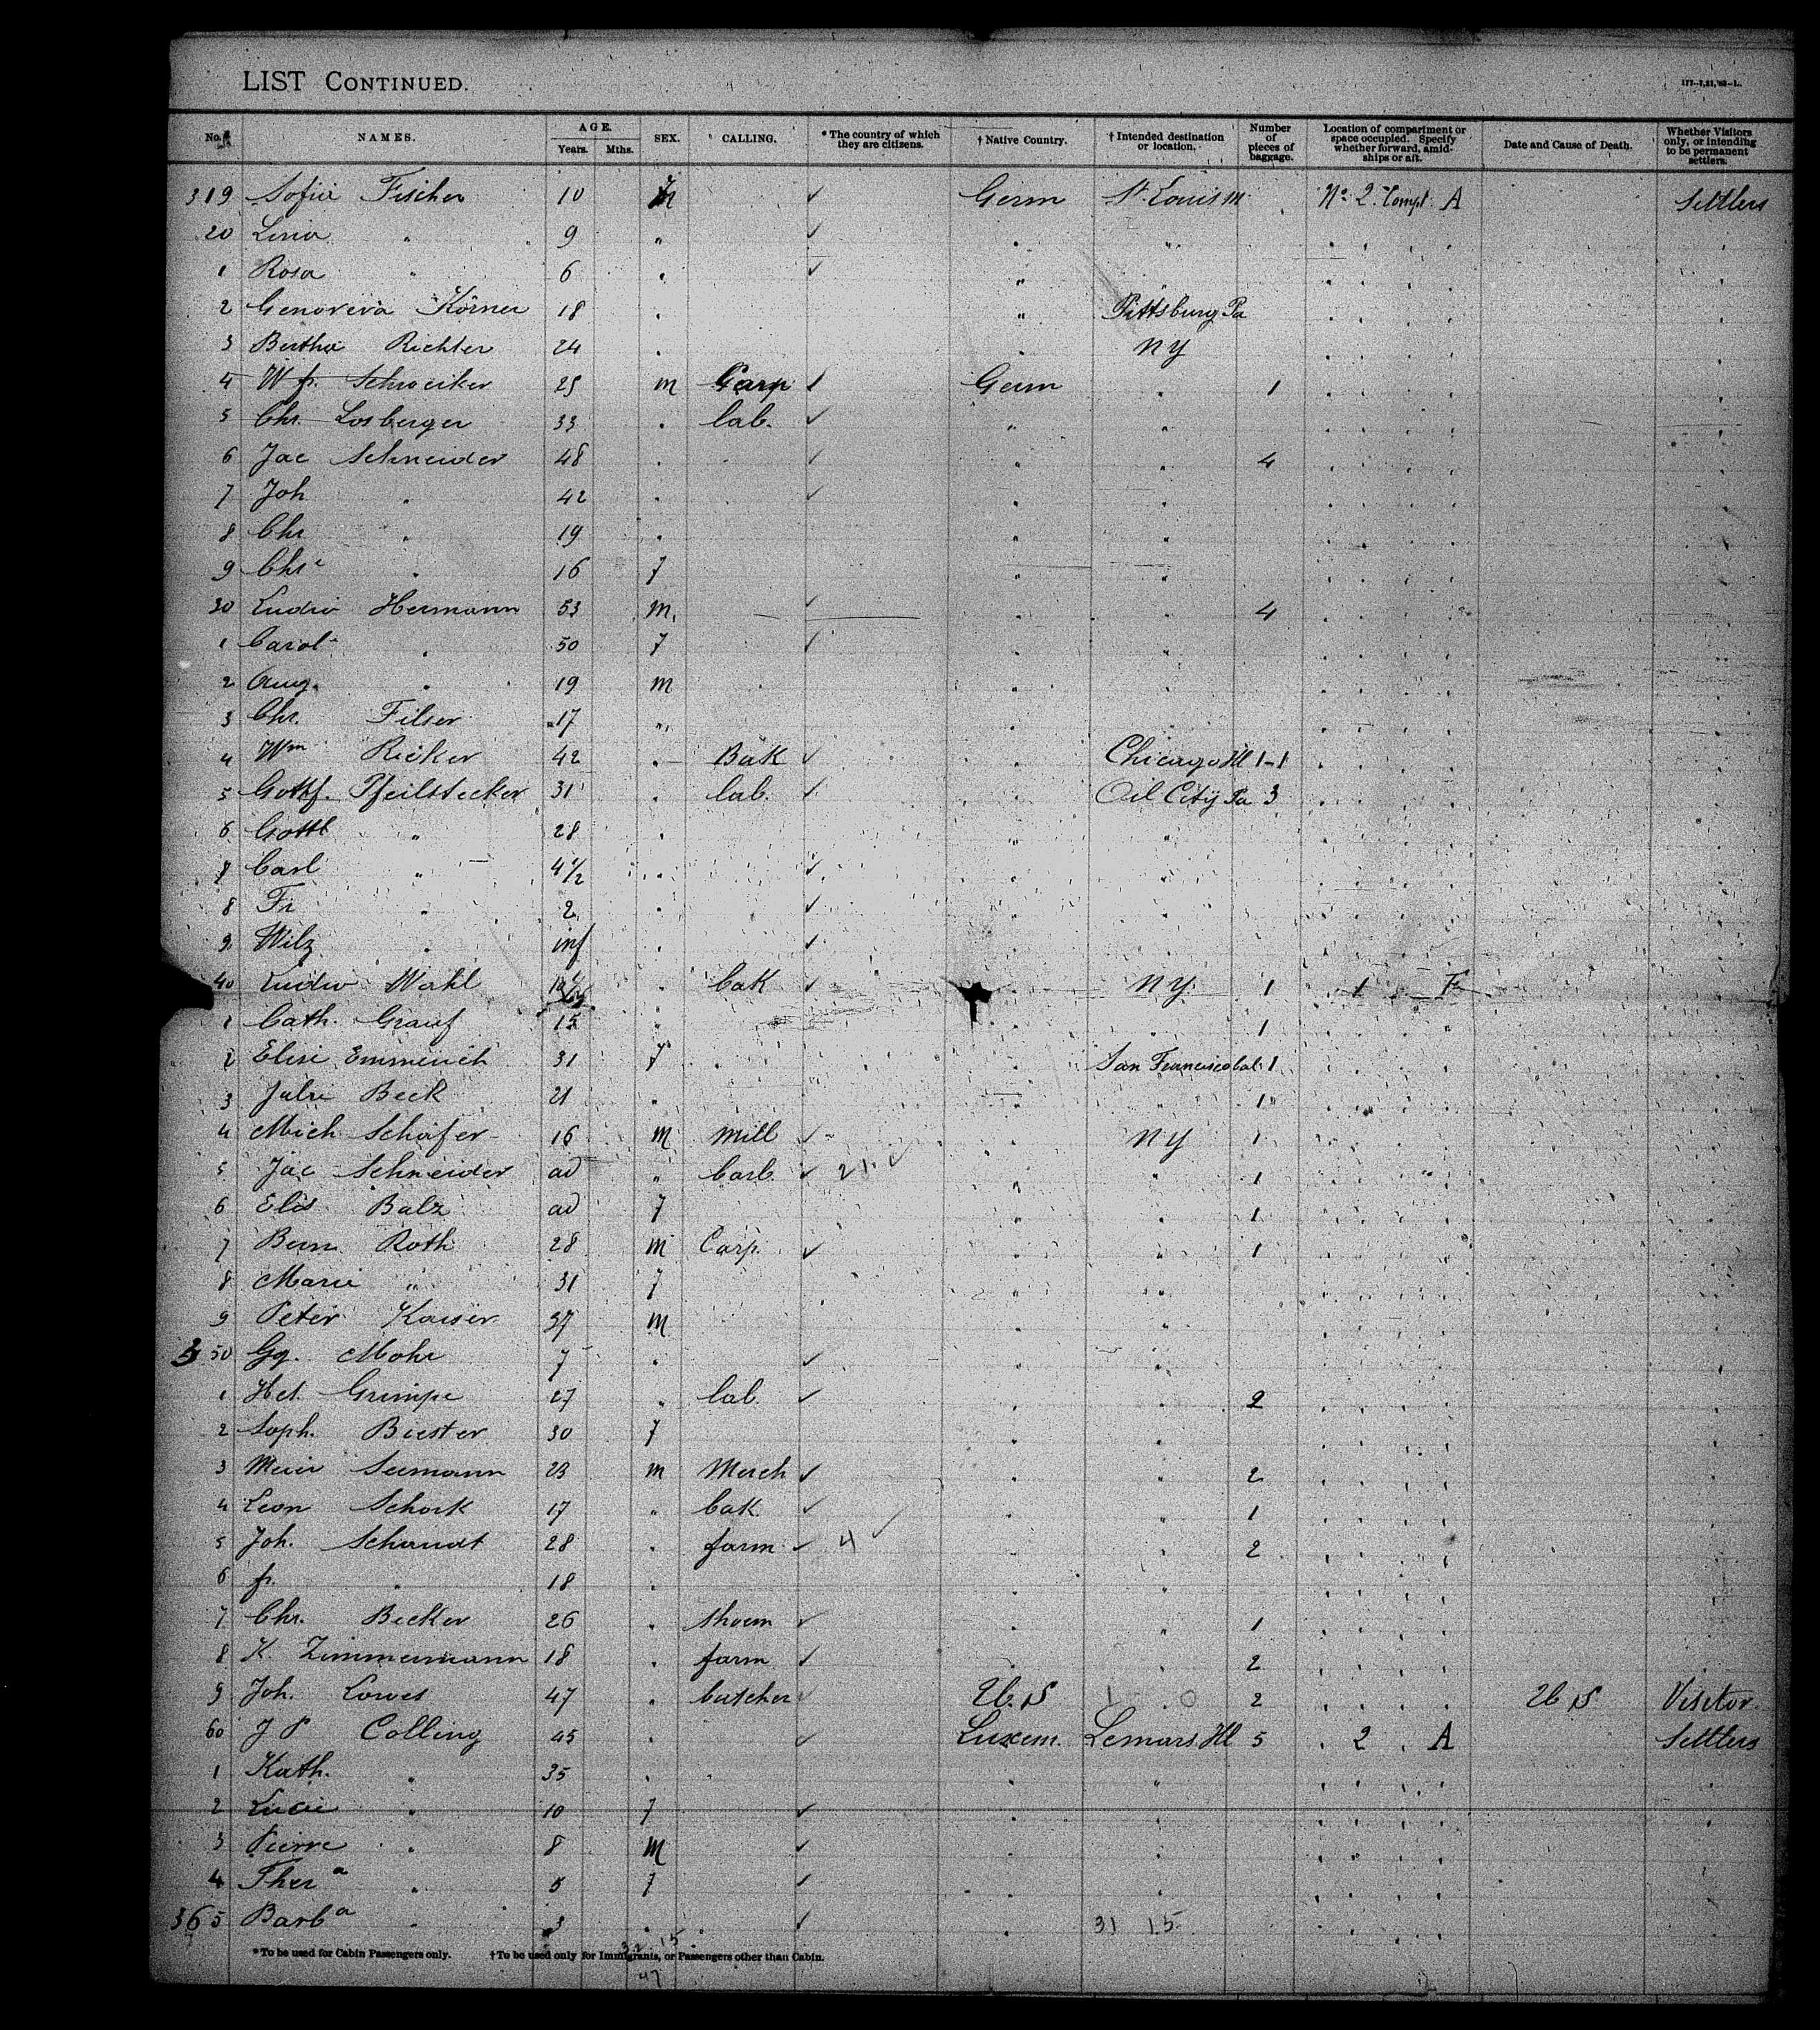 LIST CONTINUED.
No. NAMES. AGE. Years. Mths. SEX. CALLING. * The country of which they are citizens. † Native Country. † Intended destination or location. Number of pieces of baggage. Location of compartment or space occupied. Specify whether forward, amidships or aft. Date and Cause of Death. Whether Visitors only, or intending to be permanent settlers.
319 Sofia Fischer 10 ✓ Germ St. Louis M No 2 Compt A Settlers
20 Lina " 9 " ✓ " "
1 Rosa " 6 " ✓ " "
2 Genoveva Körner 18 " " Pittsburg Pa
3 Bertha Richter 24 " " N Y
4 W fr. Schweiker 25 m Carp ✓ Germ " 1
5 Chr. Losberger 33 " lab. ✓ " "
6 Jac Schneider 48 " ✓ " " 4
7 Joh " 42 " ✓ " "
8 Chr " 19 " " "
9 Chre " 16 f " "
30 Ludw Hermann 53 m. ✓ " " 4
1 Carol " 50 f ✓ " "
2 Aug. " 19 m " "
3 Chr. Filser 17 " " "
4 Wm Ricker 42 " Bak ✓ " Chicago Ill 1-1
5 Gottf. Pfeilstecker 31 " lab. ✓ " Oil City Pa 3
6 Gottl " 28 " " "
7 Carl " 4 1/2 " ✓ " "
8 Fr " 2 " ✓ " "
9 Wilh " inf " ✓ " "
40 Ludw Wahl " bak ✓ N Y. 1 1 F
1 Cath. Grauf 15 " " " 1
2 Elise Emmerich 31 f " San Francisco Cal. 1
3 Julie Beck 21 " " " 1
4 Mich Schäfer 16 m Mill ✓ " N Y 1
5 Jac Schneider ad " barb. ✓ 21 ✓ " " 1
6 Elis Balz ad f " " 1
7 Bern Roth 28 m Carp. ✓ " " 1
8 Marie " 31 f " "
9 Peter Kaiser 37 m " "
350 Gg. Mohr 7 " ✓ " "
1 Hch. Grimpe 27 " lab. ✓ " " 2
2 Soph. Biester 30 f " "
3 Meier Seemann 23 m Merch ✓ " " 2
4 Leon Schork 17 " bak. ✓ " " 1
5 Joh. Schmidt 28 " farm ✓ 4 ✓ " " 2
6 fr. " 18 " " "
7 Chr. Becker 26 " shoem ✓ " " 1
8 K. Zimmermann 18 " farm ✓ " " 2
9 Joh. Lowes 47 " butcher ✓ U.S 1 0 2 U S Visitor
60 J P Colling 45 " ✓ Luxem. Lemars Ill 5 2 A Settlers
1 Kath. " 35 " " "
2 Lucie " 10 f ✓ " "
3 Pierre " 8 m ✓ " "
4 Thera " 5 f ✓ " "
365 Barba " 3 " ✓ " 31 15
32 15
* To be used for Cabin Passengers only. † To be used only for Immigrants, or Passengers other than Cabin.
47